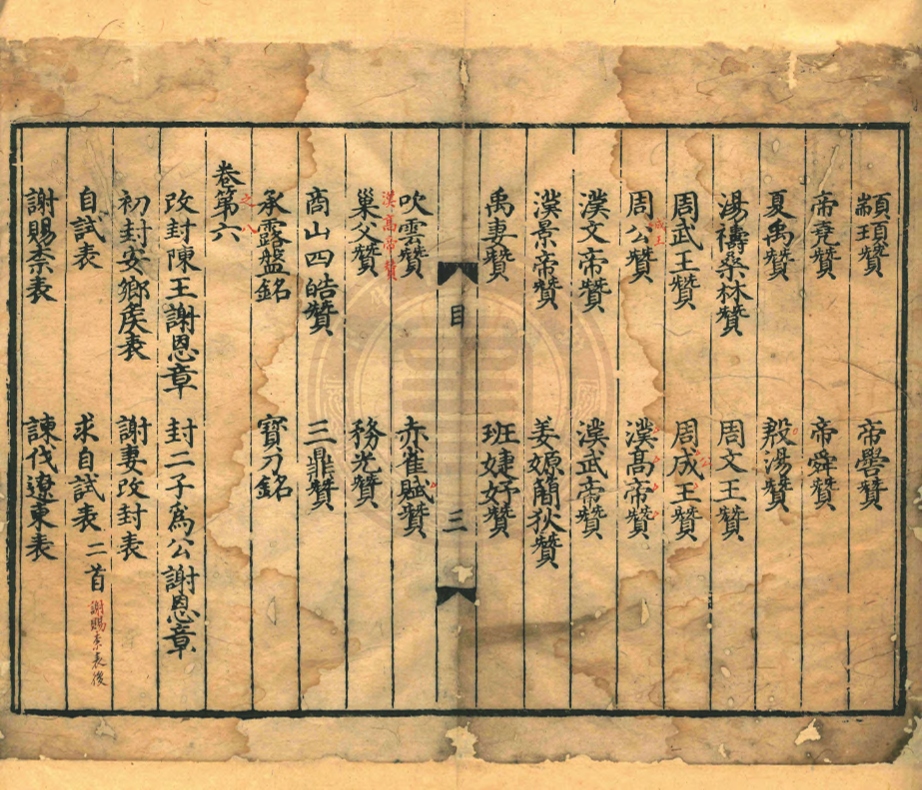 顓頊贊 帝嚳贊
帝堯贊 帝舜贊
夏禹贊 殷湯贊
湯禱桑林贊 周文王贊
周武王贊 周成王贊
成王
周公贊 漢高帝贊
漢文帝贊 漢武帝贊
漢景帝贊 姜嫄簡狄贊
禹妻贊 班婕妤贊
目 三
吹雲贊 赤雀賦贊
漢高帝贊
巢父贊 務光贊
商山四皓贊 三鼎贊
承露盤銘 寶刀銘
卷第六
之八
改封陳王謝恩章 封二子為公謝恩章
初封安鄉侯表 謝妻改封表
自試表 求自試表二首 謝賜柰表後
謝賜柰表 諫伐遼東表